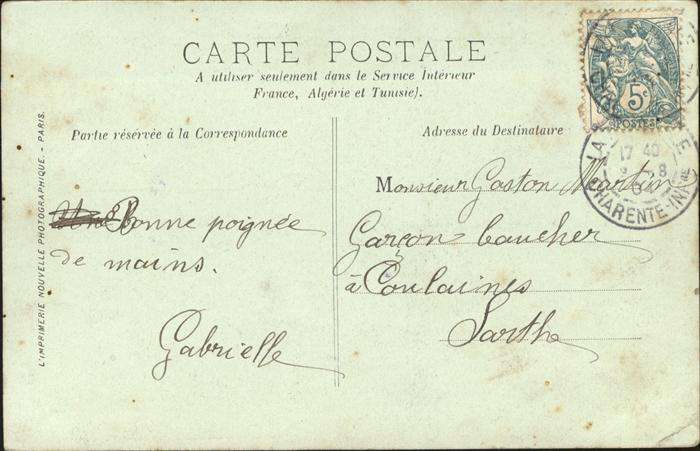 CARTE POSTALE
A utiliser seulement dans le Service Intérieur
France, Algérie et Tunisie).
Partie réservée à la Correspondance
Bonne poignée
de mains.
Gabrielle
Adresse du Destinataire
Monsieur Gaston Martin
Garçon baucher
à Coulaines
Sarthe
L'IMPRIMERIE NOUVELLE PHOTOGRAPHIQUE. - PARIS.
5c
POSTES
LA
17 40
CHARENTE-INFRE